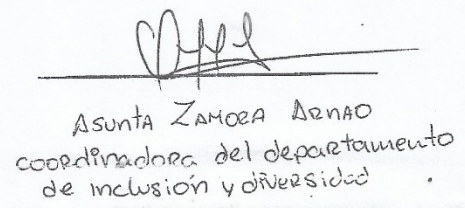 Asunta Zamora Arnao
coordinadora del departamento
de inclusión y diversidad.